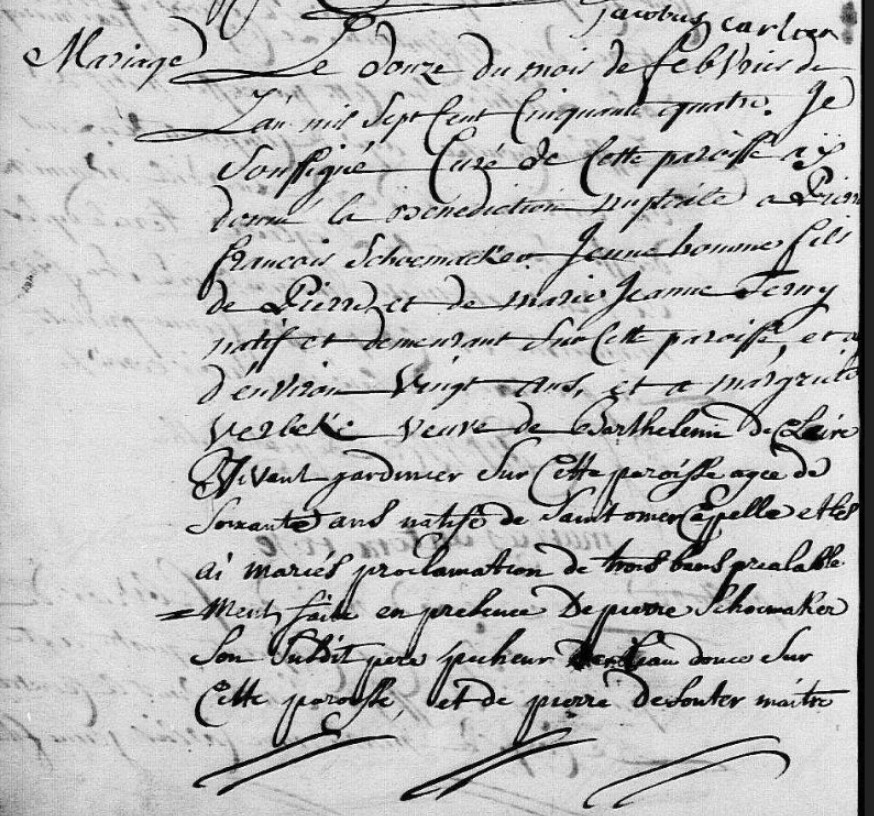 jacobus carlier
Mariage Le douze du mois de febvrier de
L'an mil sept Cent Cinquante quatre. Je
soussigné Curé de Cette paroisse ay
donné la Benediction nuptiale a Pierre
francois Schoemacker Jeune homme fils
de Pierre et de marie Jeanne
natif et demeurant sur Cette paroisse, et
d'environ Vingt ans, et a margrite
Verbeke veuve de Barthelemi de Claire
Vivant gardinier sur Cette paroisse agee de
soixante ans native de Saint omer Cappelle et les
ai mariés proclamation de trois bans prealable
= ment faite en presence De pierre Schoemaker
son susdit pere pecheur d'eau douce sur
Cette paroisse, et de pierre Desouter maitre